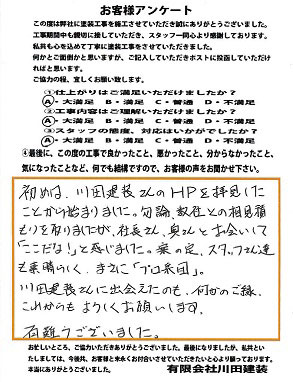 お客様アンケート
この度は弊社に塗装工事を施工させていただき誠にありがとうございました。
工事期間中も親切に接していただき、スタッフ一同心より感謝しております。
私共も心を込めて丁寧に塗装工事をさせていただきました。
何かとご面倒かと思いますが、ご記入していただきポストに投函していただければと思います。
ご協力の程、宜しくお願い致します。
①仕上がりはご満足いただけましたか?
A・大満足 B・満足 C・普通 D・不満足
②工事内容についてご理解いただけましたか?
A・大満足 B・満足 C・普通 D・不満足
③スタッフの態度、対応はいかがでしたか?
A・大満足 B・満足 C・普通 D・不満足
④最後に、この度の工事で良かったこと、悪かったこと、分からなかったこと、
気になったことなど、何でも結構ですので、お客様の声をお聞かせ下さい。
初めは、川田建装さんのHPを拝見した
ことから始まりました。勿論、数社との相見積
もりを取りましたが、社長さん、奥さんとお会いして
「ここだな!」と感じました。案の定、スタッフさん達
も素晴らしく、まさに「プロ集団」。
川田建装さんに出会えたのも、何かのご縁、
これからもよろしくお願いします。
有難うございました。
お忙しいところ、ご協力いただきありがとうございました。最後になりましたが、私共といたしましては、今後共、お客様と末永くお付合いさせていただきたいと心より願っております。
本当にありがとうございました。 有限会社川田建装